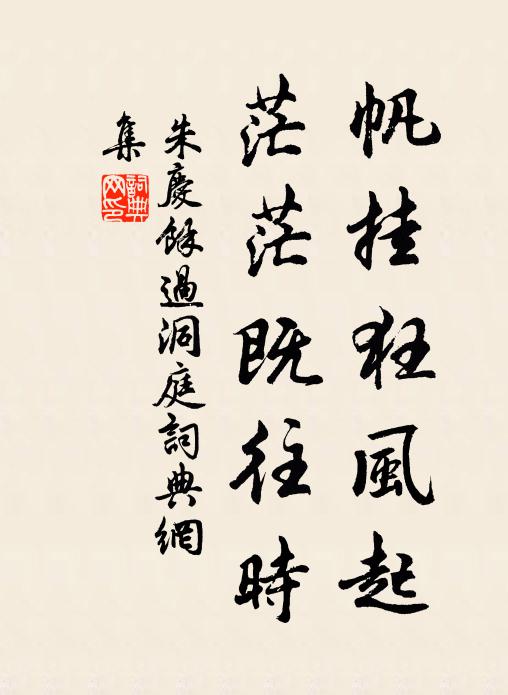 帆挂狂風起
茫茫既往時
朱慶餘過洞庭詞典網
集
詞典
网印